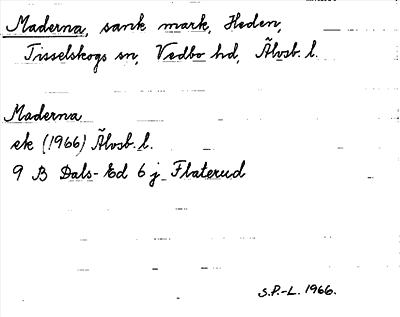 Maderna, sank mark, Heden,
Tisselskogs sn, Vedbo hd, Älvsb. l.
Maderna
ek (1966) Älvsb. l.
9 B Dals-Ed 6 j Flaterud
S.P.-L. 1966.